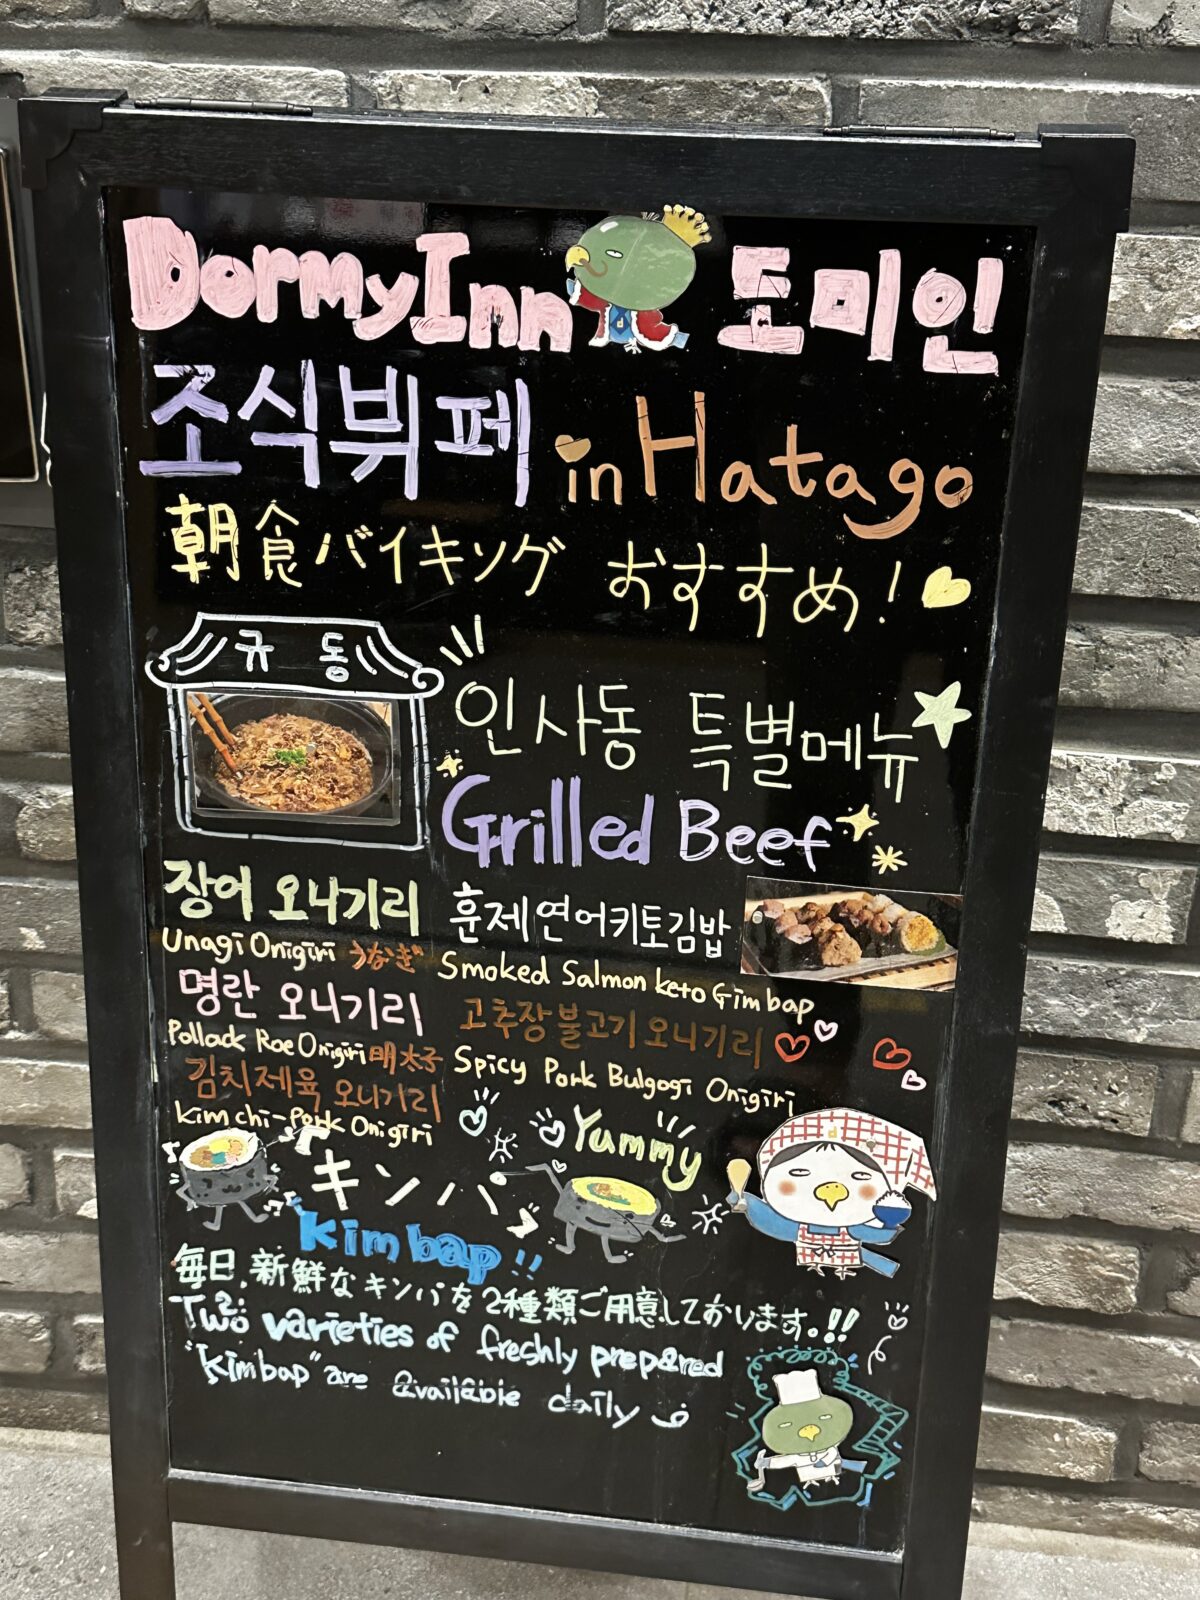 DormyInn 도미인
조식뷔페 in Hatago
朝食バイキング おすすめ!
규동
인사동 특별메뉴
Grilled Beef
장어 오니기리
Unagi Onigiri うなぎ
명란 오니기리
Pollack Roe Onigiri 明太子
김치제육 오니기리
Kimchi-Pork Onigiri
훈제연어키토김밥
Smoked Salmon keto Gimbap
고추장불고기오니기리
Spicy Pork Bulgogi Onigiri
Yummy
キンパ
Kimbap!!
毎日、新鮮なキンパを2種類ご用意しております。!!
Two varieties of freshly prepared
"Kimbap" are available daily